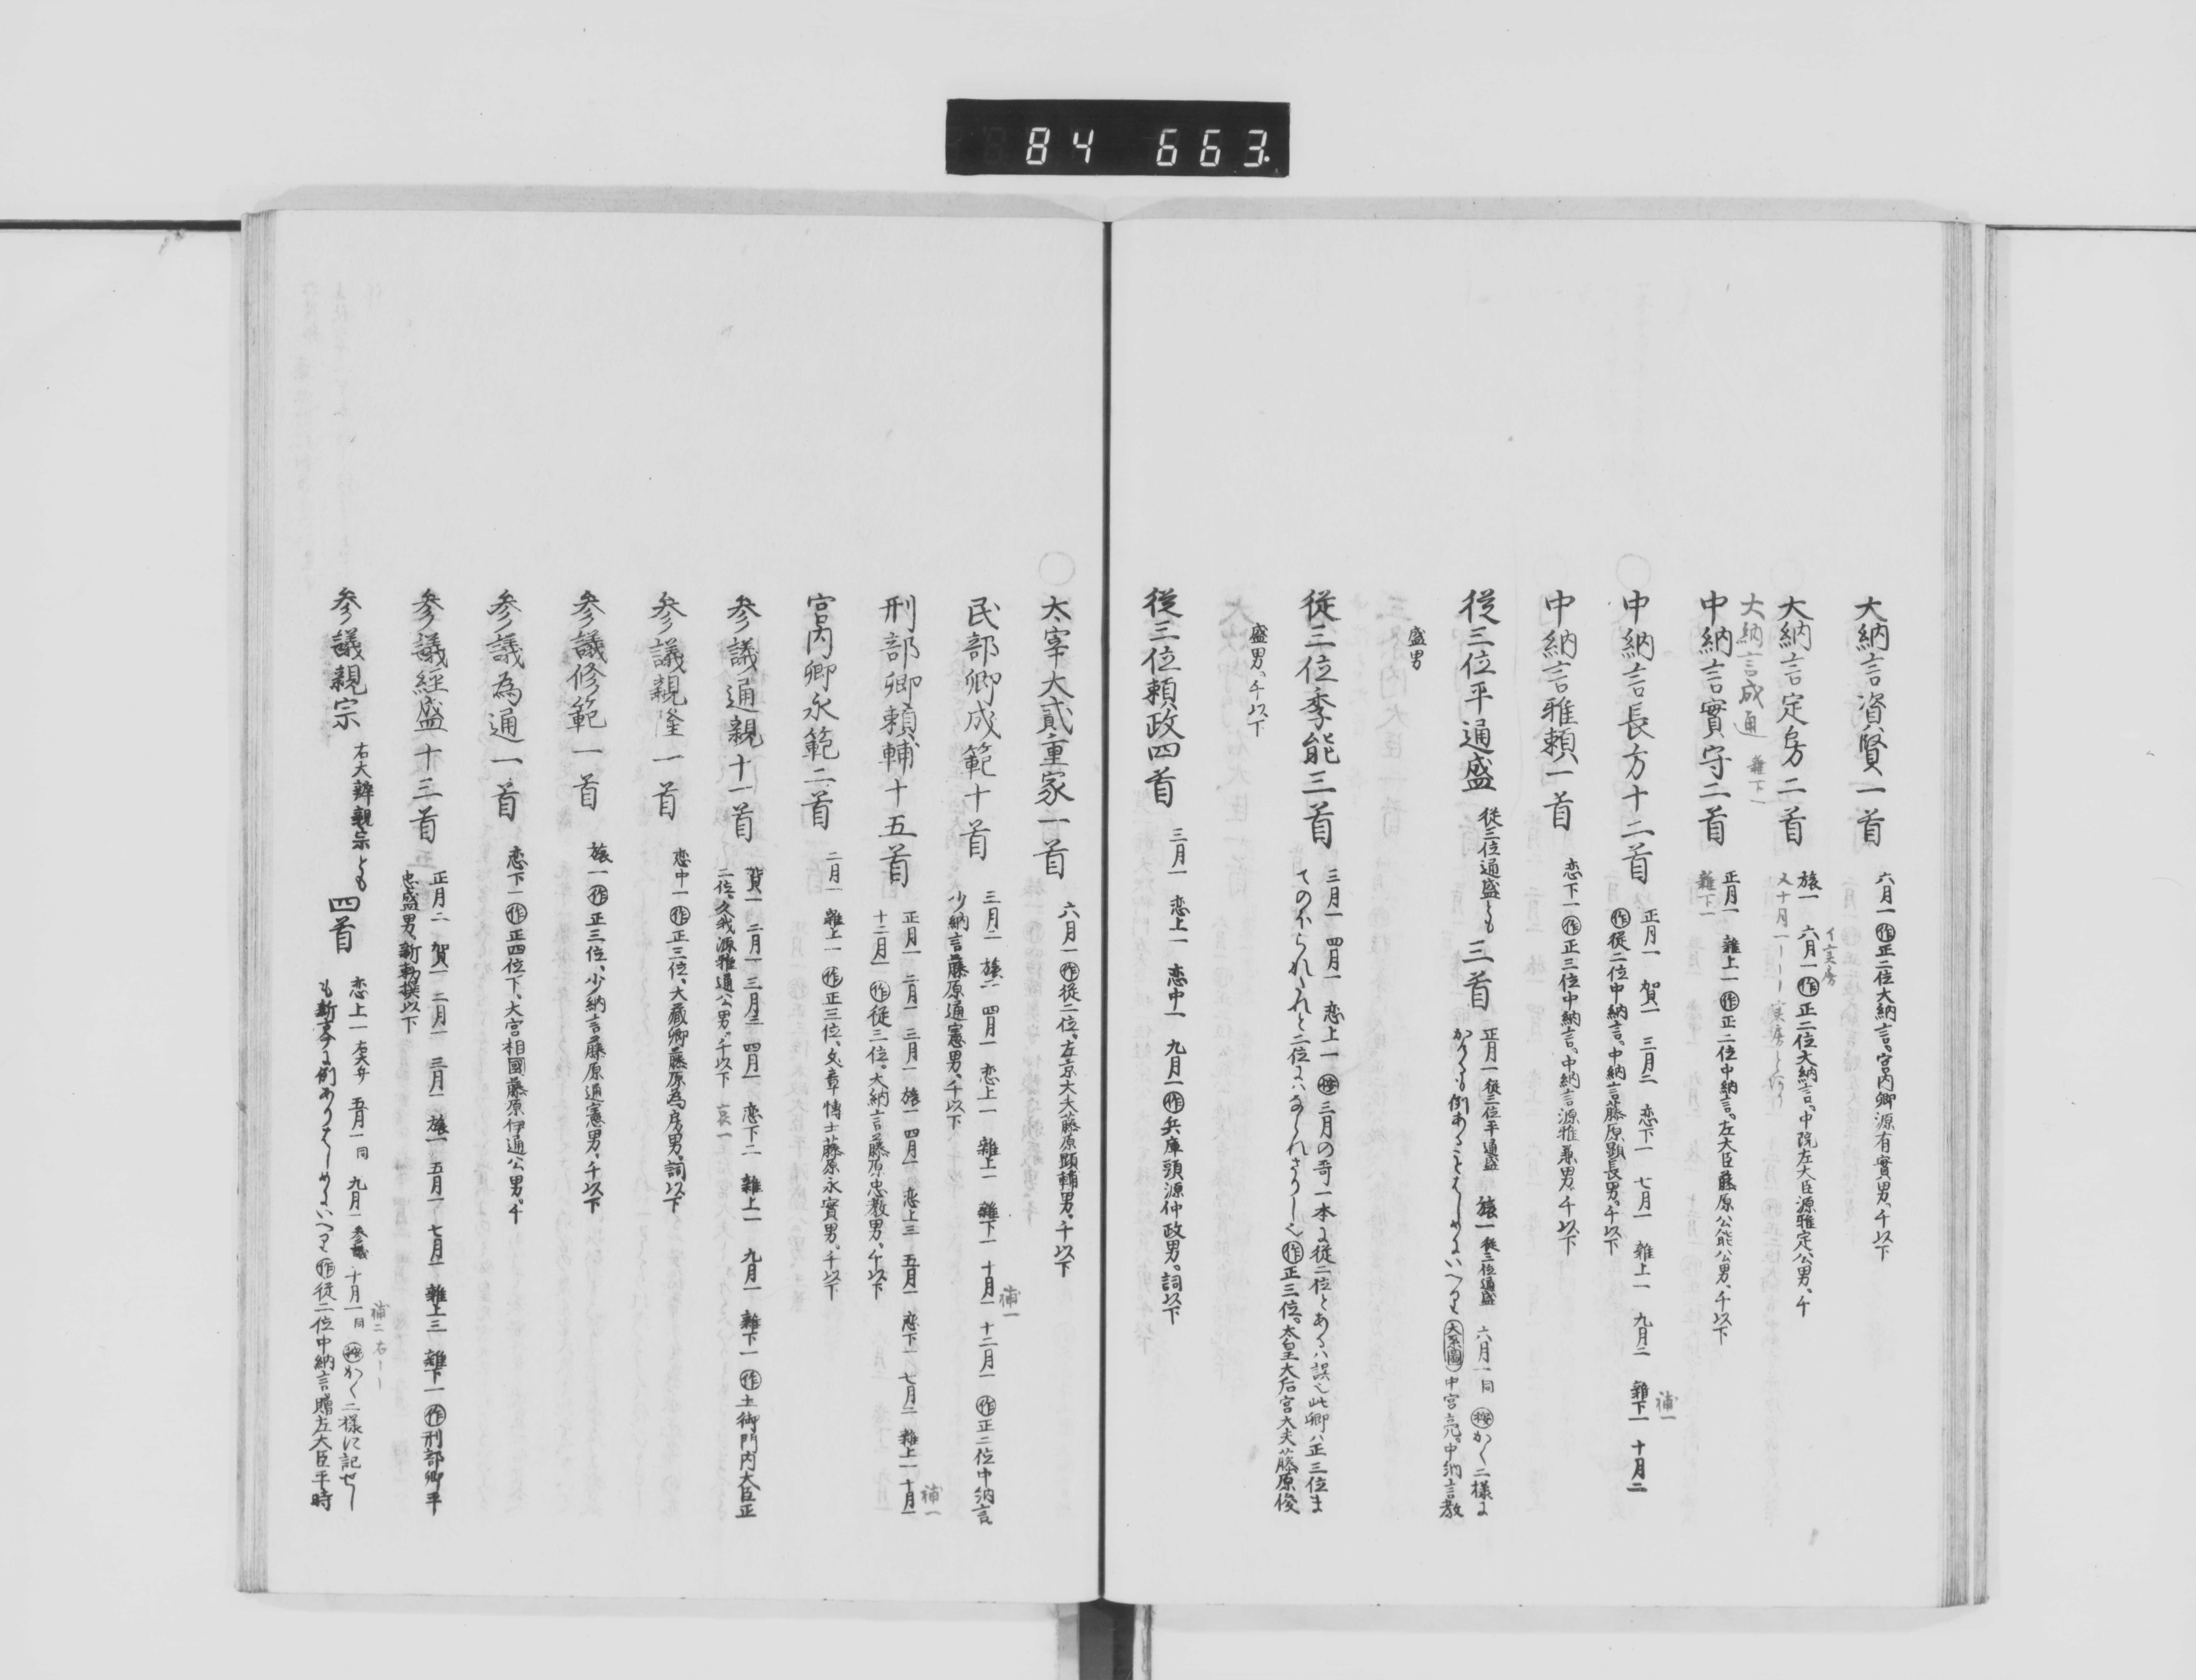 84 663.
大納言資賢一首
六月一 作 正二位大納言。宮内卿源有賢男。千以下
大納言定房二首
旅一 六月一 作 正二位大納言。中院左大臣源雅定公男。千
イ実房
又十月一
大納言成通
雜下一
中納言實守二首
正月一 雜上一 作 正二位中納言。左大臣藤原公能公男。千以下
雜下一
中納言長方十二首
正月一 賀一 三月二 恋下一 七月一 雜上一 九月二 雜下一 十月二
補一
作 從二位中納言。中納言藤原顕長男。千以下
中納言雅頼一首
恋下一 作 正三位中納言。中納言源雅兼男。千以下
從三位平通盛 從三位通盛とも 三首
正月一 從三位平通盛 旅一 從三位通盛 六月一同 按 かく二様に
かけるも例あることはしめにいへり 大系圖 中宮亮。中納言教
盛男
從三位季能三首
三月一 四月一 恋上一 按 三月の哥一本に從二位とあるハ誤也此卿ハ正三位ま
てのほられたれと二位にハなられさりし也 作 正三位。太皇大后宮大夫藤原俊
盛男。千以下
從三位頼政四首
三月一 恋上一 恋中一 九月一 作 兵庫頭源仲政男。詞以下
太宰大貳重家一首
六月一 作 從二位。左京大夫藤原顕輔男。千以下
民部卿成範十首
三月二 旅一 四月一 恋上一 雜上一 雜下一 十月一 十二月一 作 正二位中納言。
補一
少納言藤原通憲男。千以下
刑部卿頼輔十五首
正月一 二月一 三月一 旅一 四月一 恋上三 五月一 恋下一 七月二 雜上一 十月一
補一
十二月一 作 從三位。大納言藤原忠教男。千以下
宮内卿永範二首
二月一 雜上一 作 正三位、文章博士藤原永實男。千以下
参議通親十一首
賀一 二月一 三月三 四月一 恋下二 雜上一 九月一 雜下一 作 土御門内大臣正
二位。久我源雅通公男。千以下 哀一
参議親隆一首
恋中一 作 正三位、大藏卿藤原為房男。詞以下
参議修範一首
旅一 作 正三位、少納言藤原通憲男。千以下
参議為通一首
恋下一 作 正四位下、大宮相國藤原伊通公男。千
参議經盛十三首
正月二 賀一 二月一 三月一 旅一 五月一 七月一 雜上三 雜下一 作 刑部卿平
忠盛男、新勅撰以下
参議親宗 右大辨親宗とも 四首
恋上一 右大弁 五月一同 九月一 参議 十月一同 按 かく二様に記せし
補二 右
も新古今に例ありはしめにいへり 作 從二位中納言。贈左大臣平時